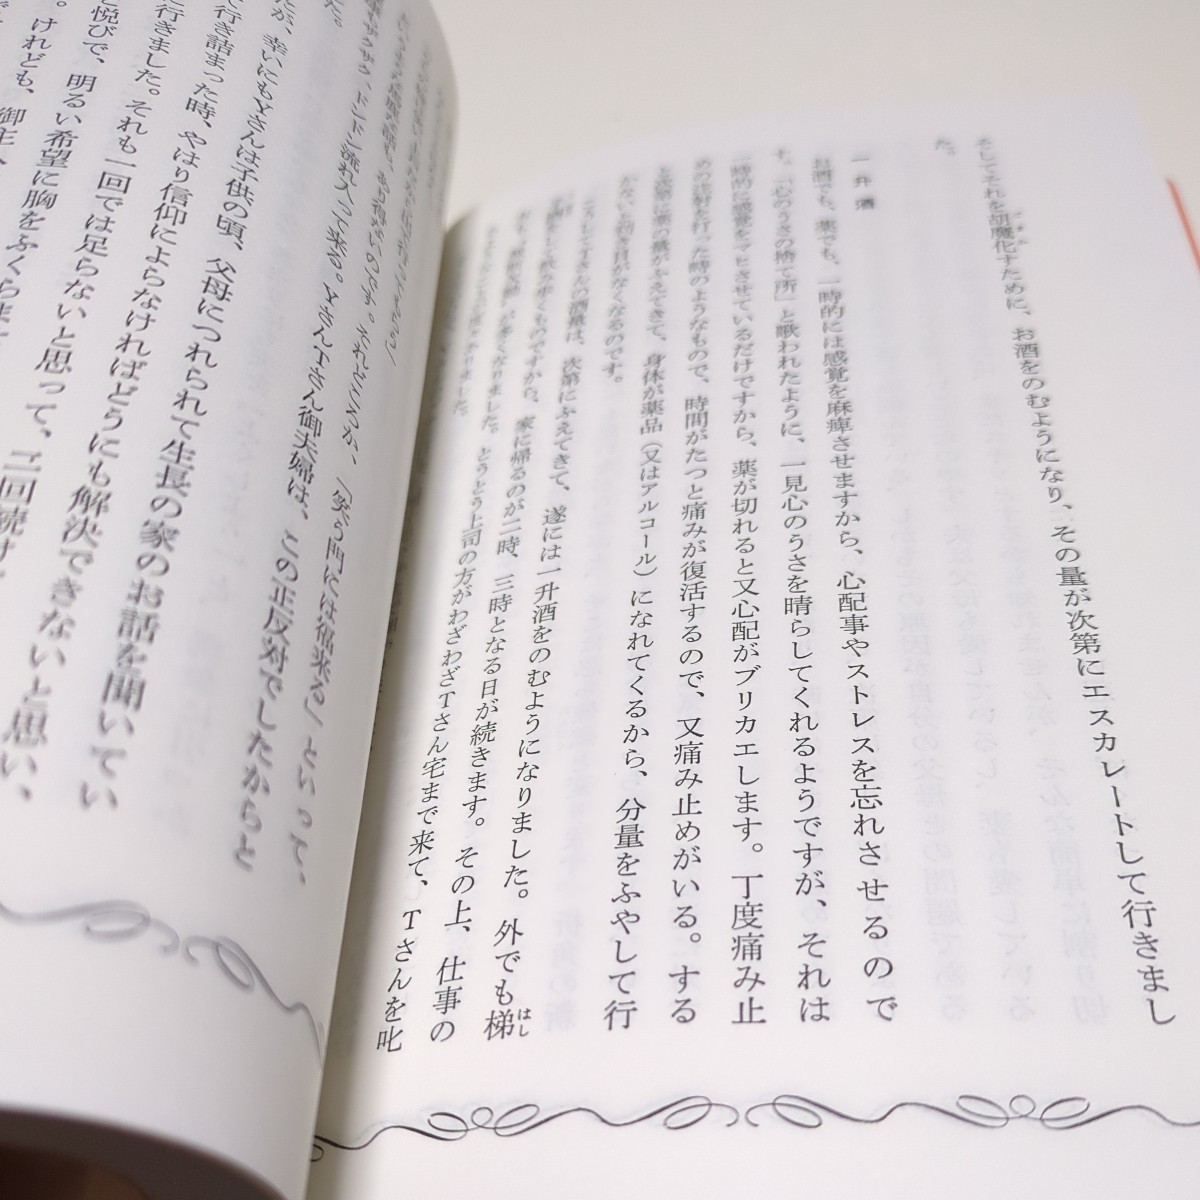 そしてそれを胡魔化すために、お酒をのむようになり、その量が次第にエスカレートして行きまし
た。
一升酒
お酒でも、薬でも、一時的には感覚を麻痺させますから、心配事やストレスを忘れさせるので
す。「心のうさの捨て所」と歌われたように、一見心のうさを晴らしてくれるようですが、それは
一時的に感覚をマヒさせているだけですから、薬が切れると又心配がブリカエします。丁度痛み止
めの注射を打った時のようなもので、時間がたつと痛みが復活するので、又痛み止めがいる。する
と次第に薬の量がふえてきて、身体が薬品（又はアルコール）になれてくるから、分量をふやして行
かないと効き目がなくなるのです。
こうしてTさんの酒量は、次第にふえてきて、遂には一升酒をのむようになりました。外でも梯
はし
をして飲み歩くものですから、家に帰るのが二時、三時となる日が続きます。その上、仕事の
が多くなりました。とうとう上司の方がわざわざTさん宅まで来て、Tさんを叱
ました。
あり得ないのです。それどころか、「笑う門には福来る」といって、
ドンドン流れ入って来る。YさんTさん御夫婦は、この正反対でしたからと
た。
が、幸いにもYさんは子供の頃、父母につれられて生長の家のお話を聞いてい
行き詰まった時、やはり信仰によらなければどうにも解決できないと思い、
行きました。それも一回では足らないと思って、二回続け
悦びで、明るい希望に胸をふくらま
けれども、御主人